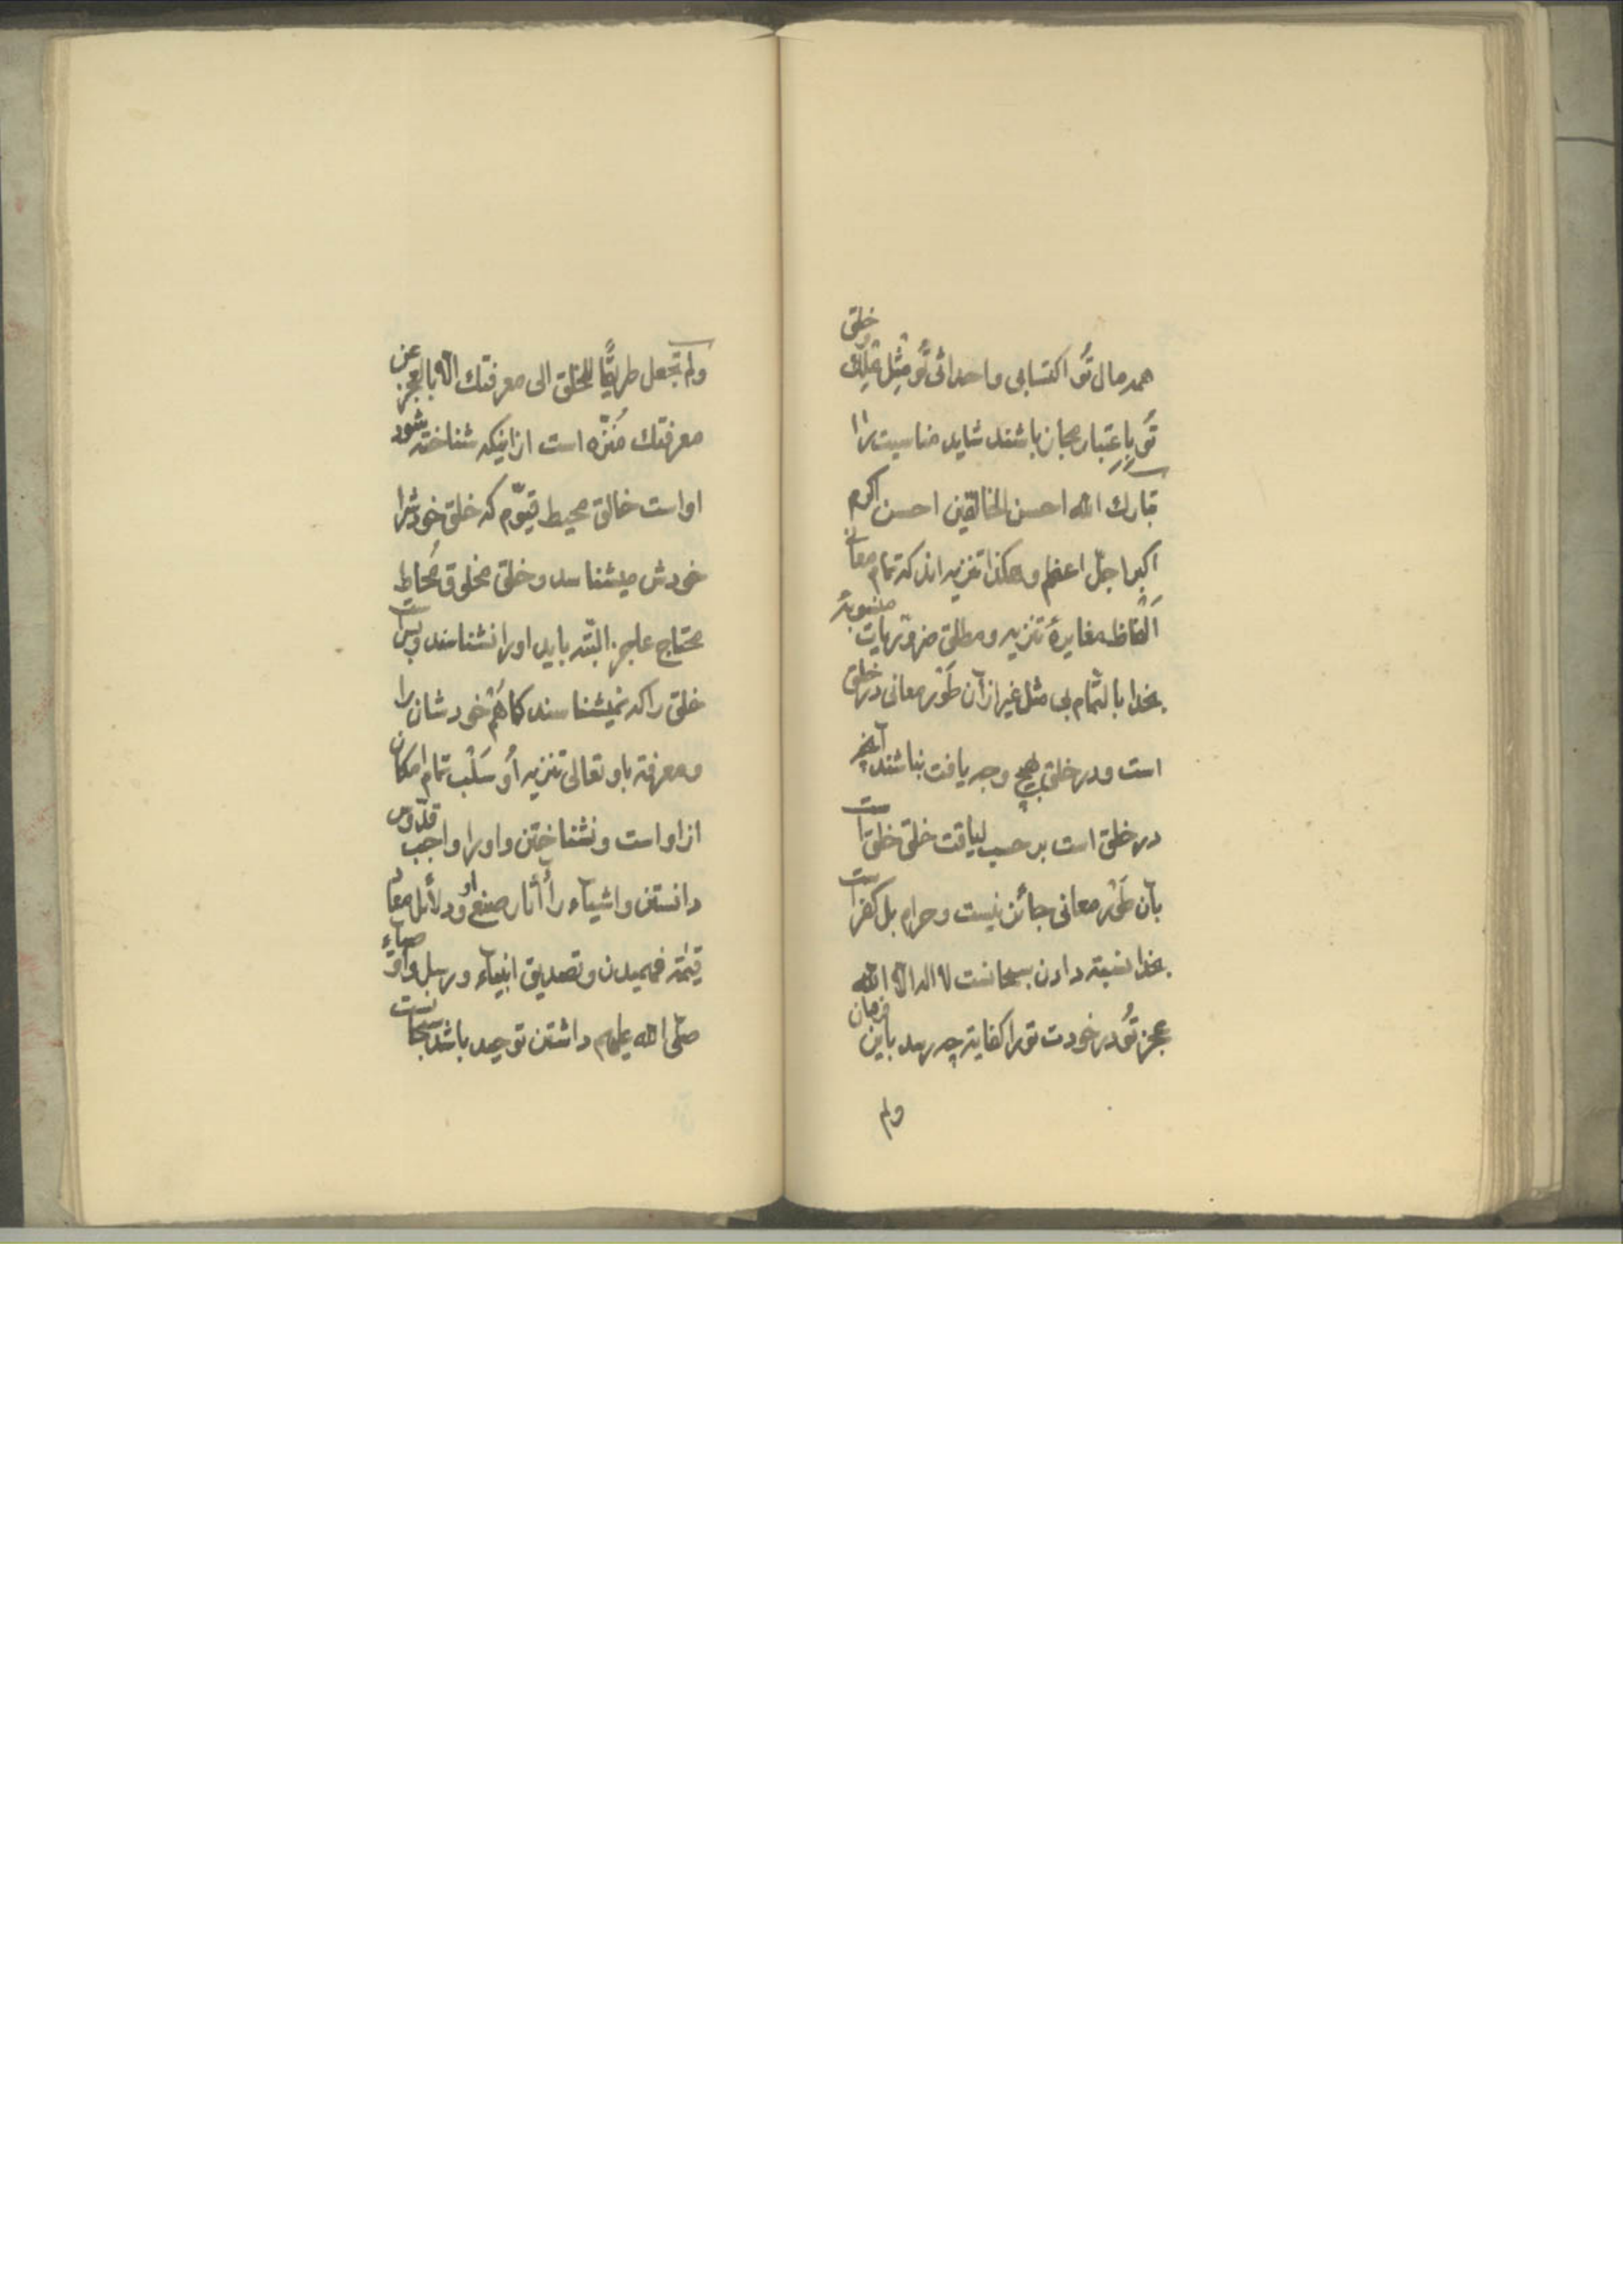 همه مال تو اکتسابی و احداثی تو مثل تملّک خلق
تو باعتبار مجاز باشند شاید مناسبت را
تبارك الله احسن الخالقین احسن اکرم
اکبر اجلّ اعظم و هکذا تنزیه اند که تمام معانی
الفاظ مغایرهٔ تنزیه و مطلق ضروریات منسوبهٔ
بخدا بالتمام بی مثل غیر از آن طَوْر معانی در خلق
است و در خلق بهیچ وجه یافت نباشند آنچه
در خلق است بر حسب لیاقت خلق خلق است
بآن طَوْر معانی جائز نیست و حرام بل کفر است
بخدا نسبة دادن سبحانست لا اله الا الله
عجز تو در خودت تو را کفایة چه رسد باین فرمان
ولم
ولم تجعل طریقًا للخلق الی معرفتك الّا بالعجز عن
معرفتك مُنَزّه است از اینکه شناخته شود
او است خالق محیط قیّوم که خلق خودش را
خودش میشناسد و خلق مخلوق مُحاط
محتاج عاجز البتّه باید او را نشناسند و بس است
خلق را که نمیشناسند کماهُم خودشان را
و معرفة باو تعالی تنزیه او سَلْب تمام امکان
از او است و نشناختن و او را واجب قدّوس
دانستن و اشیآء را آثار صنع او و دلائل مقام
قیّمة فهمیدن و تصدیق انبیآء و رسل و اوصیآء
صلّی الله علیهم داشتن توحید باشد سبحانست